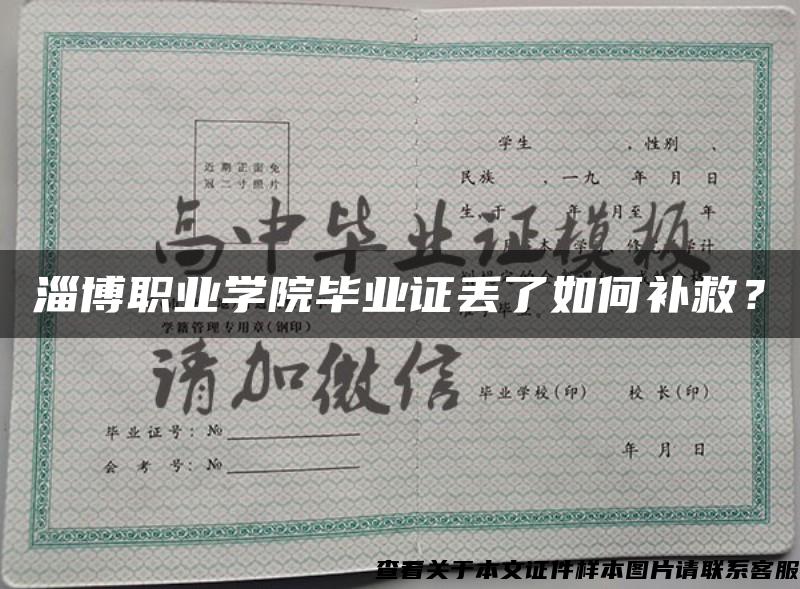 学生 ,性别 、
近期正面免
冠二寸照片
民族 、一九 年 月 日
高中毕业证模板
淄博职业学院毕业证丢了如何补救？
学籍管理专用章(钢印)
请加微信
毕业学校(印) 校 长(印)
毕业证号：№
年 月 日
会 考 号：№
查看关于本文证件样本图片请联系客服